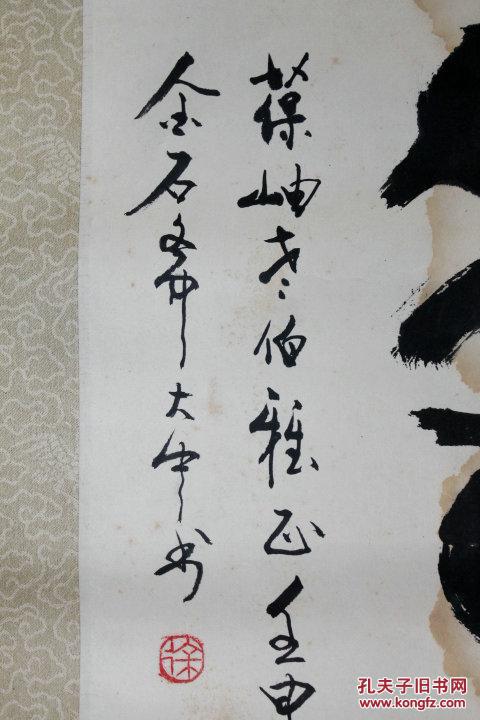 葆岫老伯雅正 壬申
金石斋 大中书
徐
孔夫子旧书网
www.kongfz.com